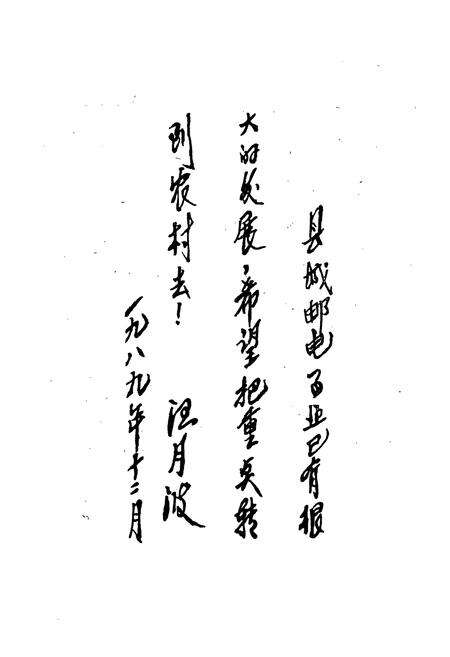 县城邮电事业已有很
大的发展,希望把重点转
到农村去! 月波
一九八九年十二月